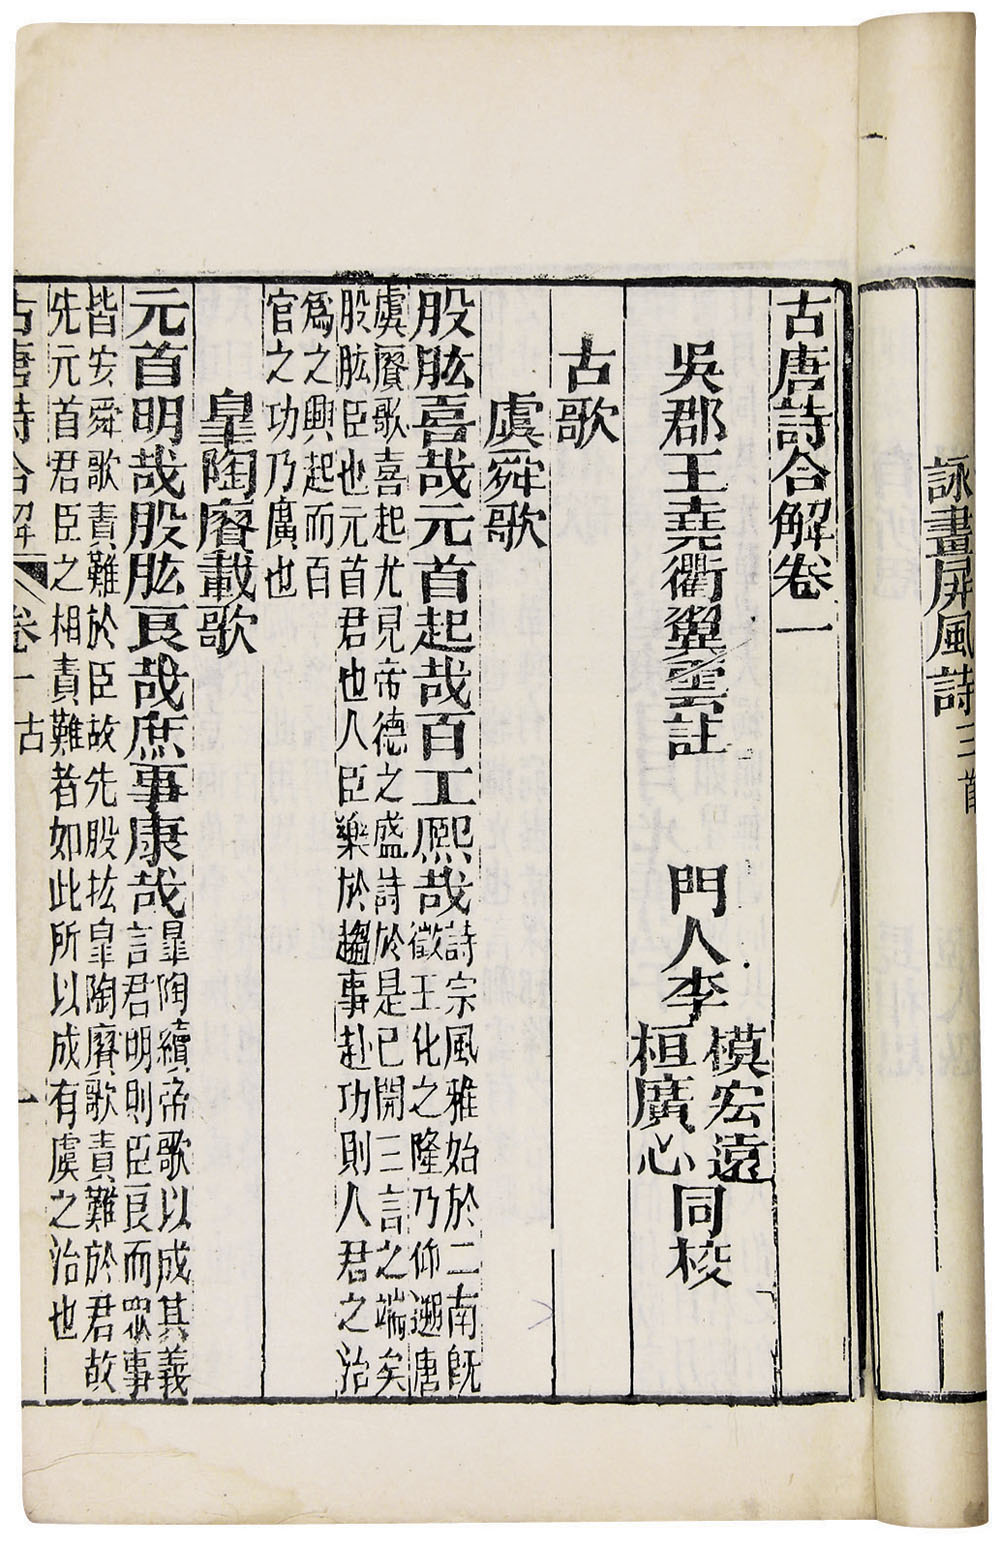 詠畫屏風詩三首
古唐詩合解卷一
吳郡王堯衢翼雲註 門人李
模宏遠
桓廣心
同梭
古歌
虞舜歌
股肱喜哉元首起哉百工熙哉
詩宗風雅始於二南旣
徵王化之隆乃仰遡唐
虞賡歌喜起尤見帝德之盛詩於是已開三言之端矣
股肱臣也元首君也人臣樂於趨事赴功則人君之治
爲之興起而百
官之功乃廣也
皐陶賡載歌
元首明哉股肱良哉庶事康哉
皐陶續帝歌以成其義
言君明則臣良而眾事
皆安舜歌責難於臣故先股肱皐陶賡歌責難於君故
先元首君臣之相責難者如此所以成有虞之治也
古唐詩合解 卷一 古 一